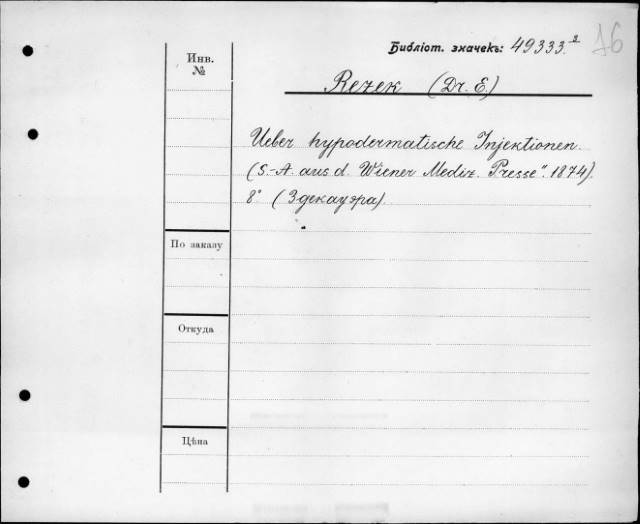 Библіот. значекъ: 49333 ² 16
Инв. №
Rezek (Dr. E.)
Ueber hypodermatische Injektionen.
(S.-A. aus d. Wiener Mediz. Presse". 1874).
8° (Здекауэра).
По заказу
Откуда
Цѣна